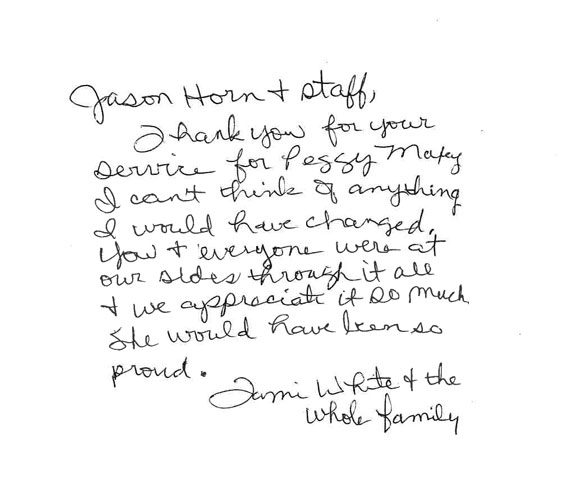 Jason Horn + staff,
Thank you for your
service for Peggy Maxey
I can't think of anything
I would have changed.
You + everyone were at
our sides through it all
+ we appreciate it so much
She would have been so
proud.
Tami White + the
whole family